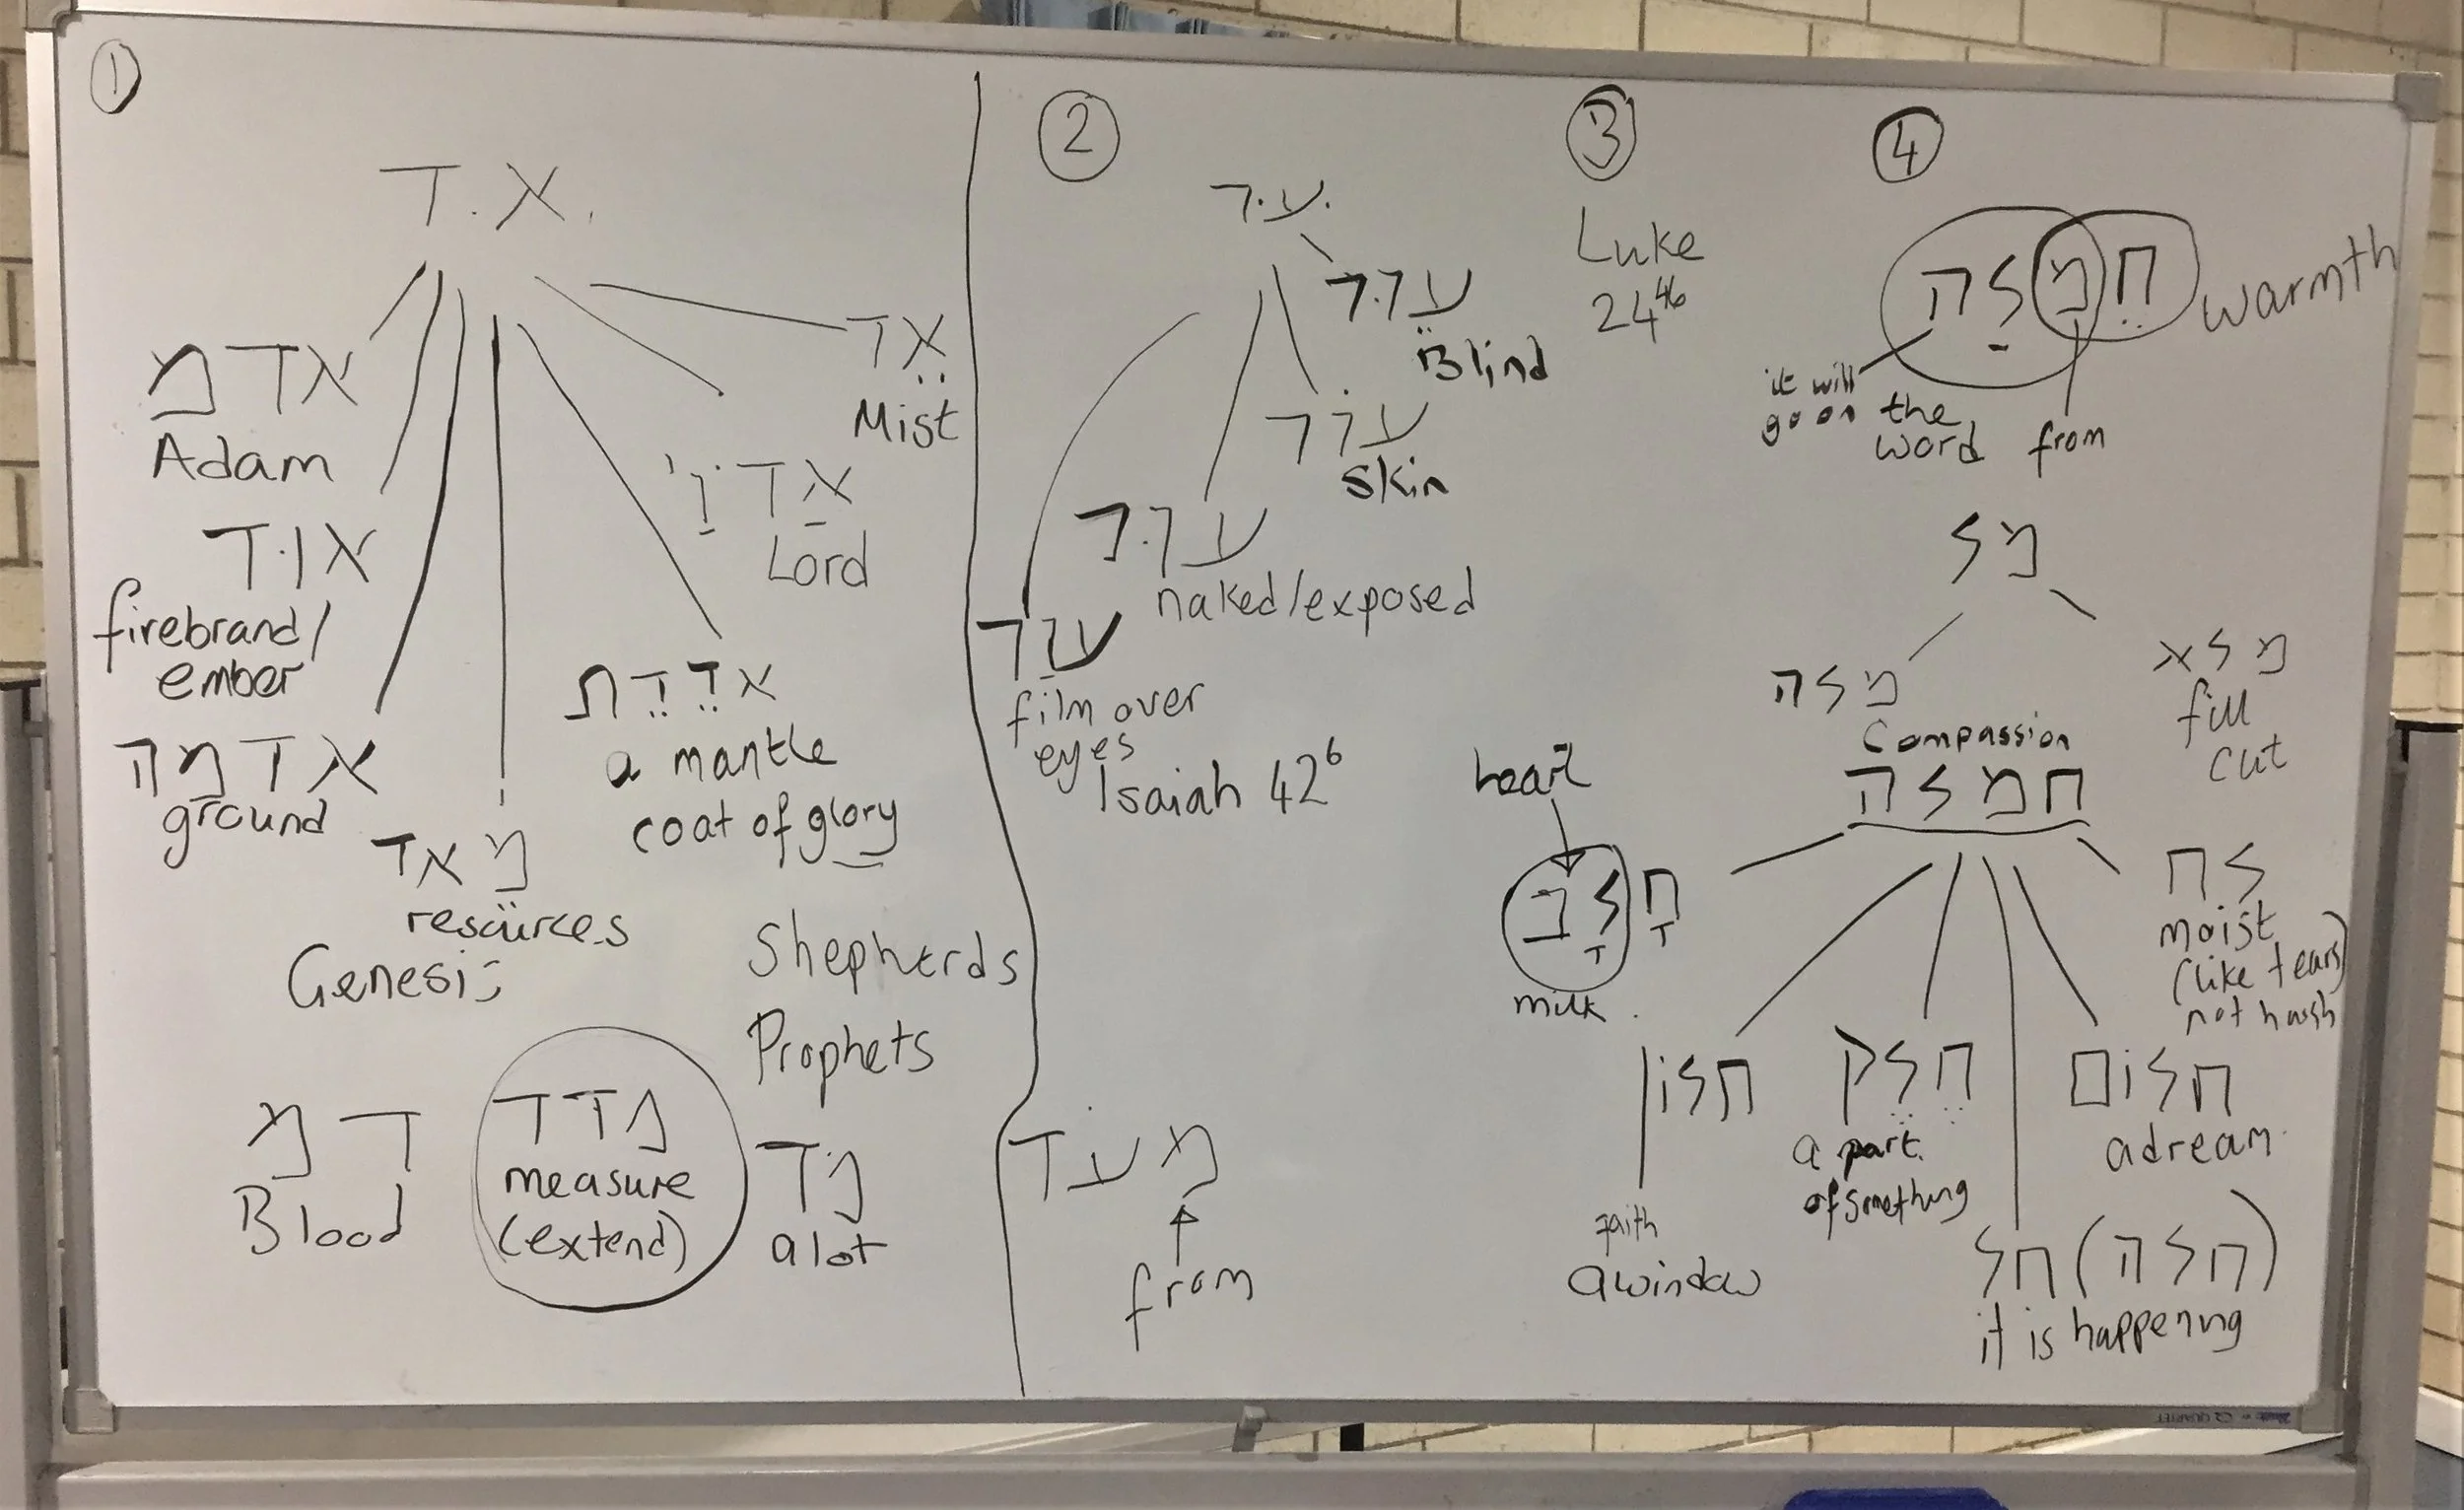 ①
א.ד.
אדמ
Adam
אוד
firebrand/
ember
אדמה
ground
מאד
resources
Genesis
אדרת
a mantle
coat of glory
אדני
Lord
אד
Mist
Shepherds
Prophets
דמ
Blood
מדד
measure
(extend)
מד
a lot
②
ע.ר.
עור
Blind
עור
skin
ערר
naked/exposed
עור
film over
eyes
Isaiah 42⁶
מעד
from
③
Luke
24⁴⁶
④
חמלה
warmth
it will
go on
the
word
from
מל
מלה
מלא
fill
cut
Compassion
חמלה
heart
חלב
milk
חלון
faith
a window
חלק
a part
of something
חלום
a dream
לח
moist
(like tears)
not harsh
חל (חלה)
it is happening